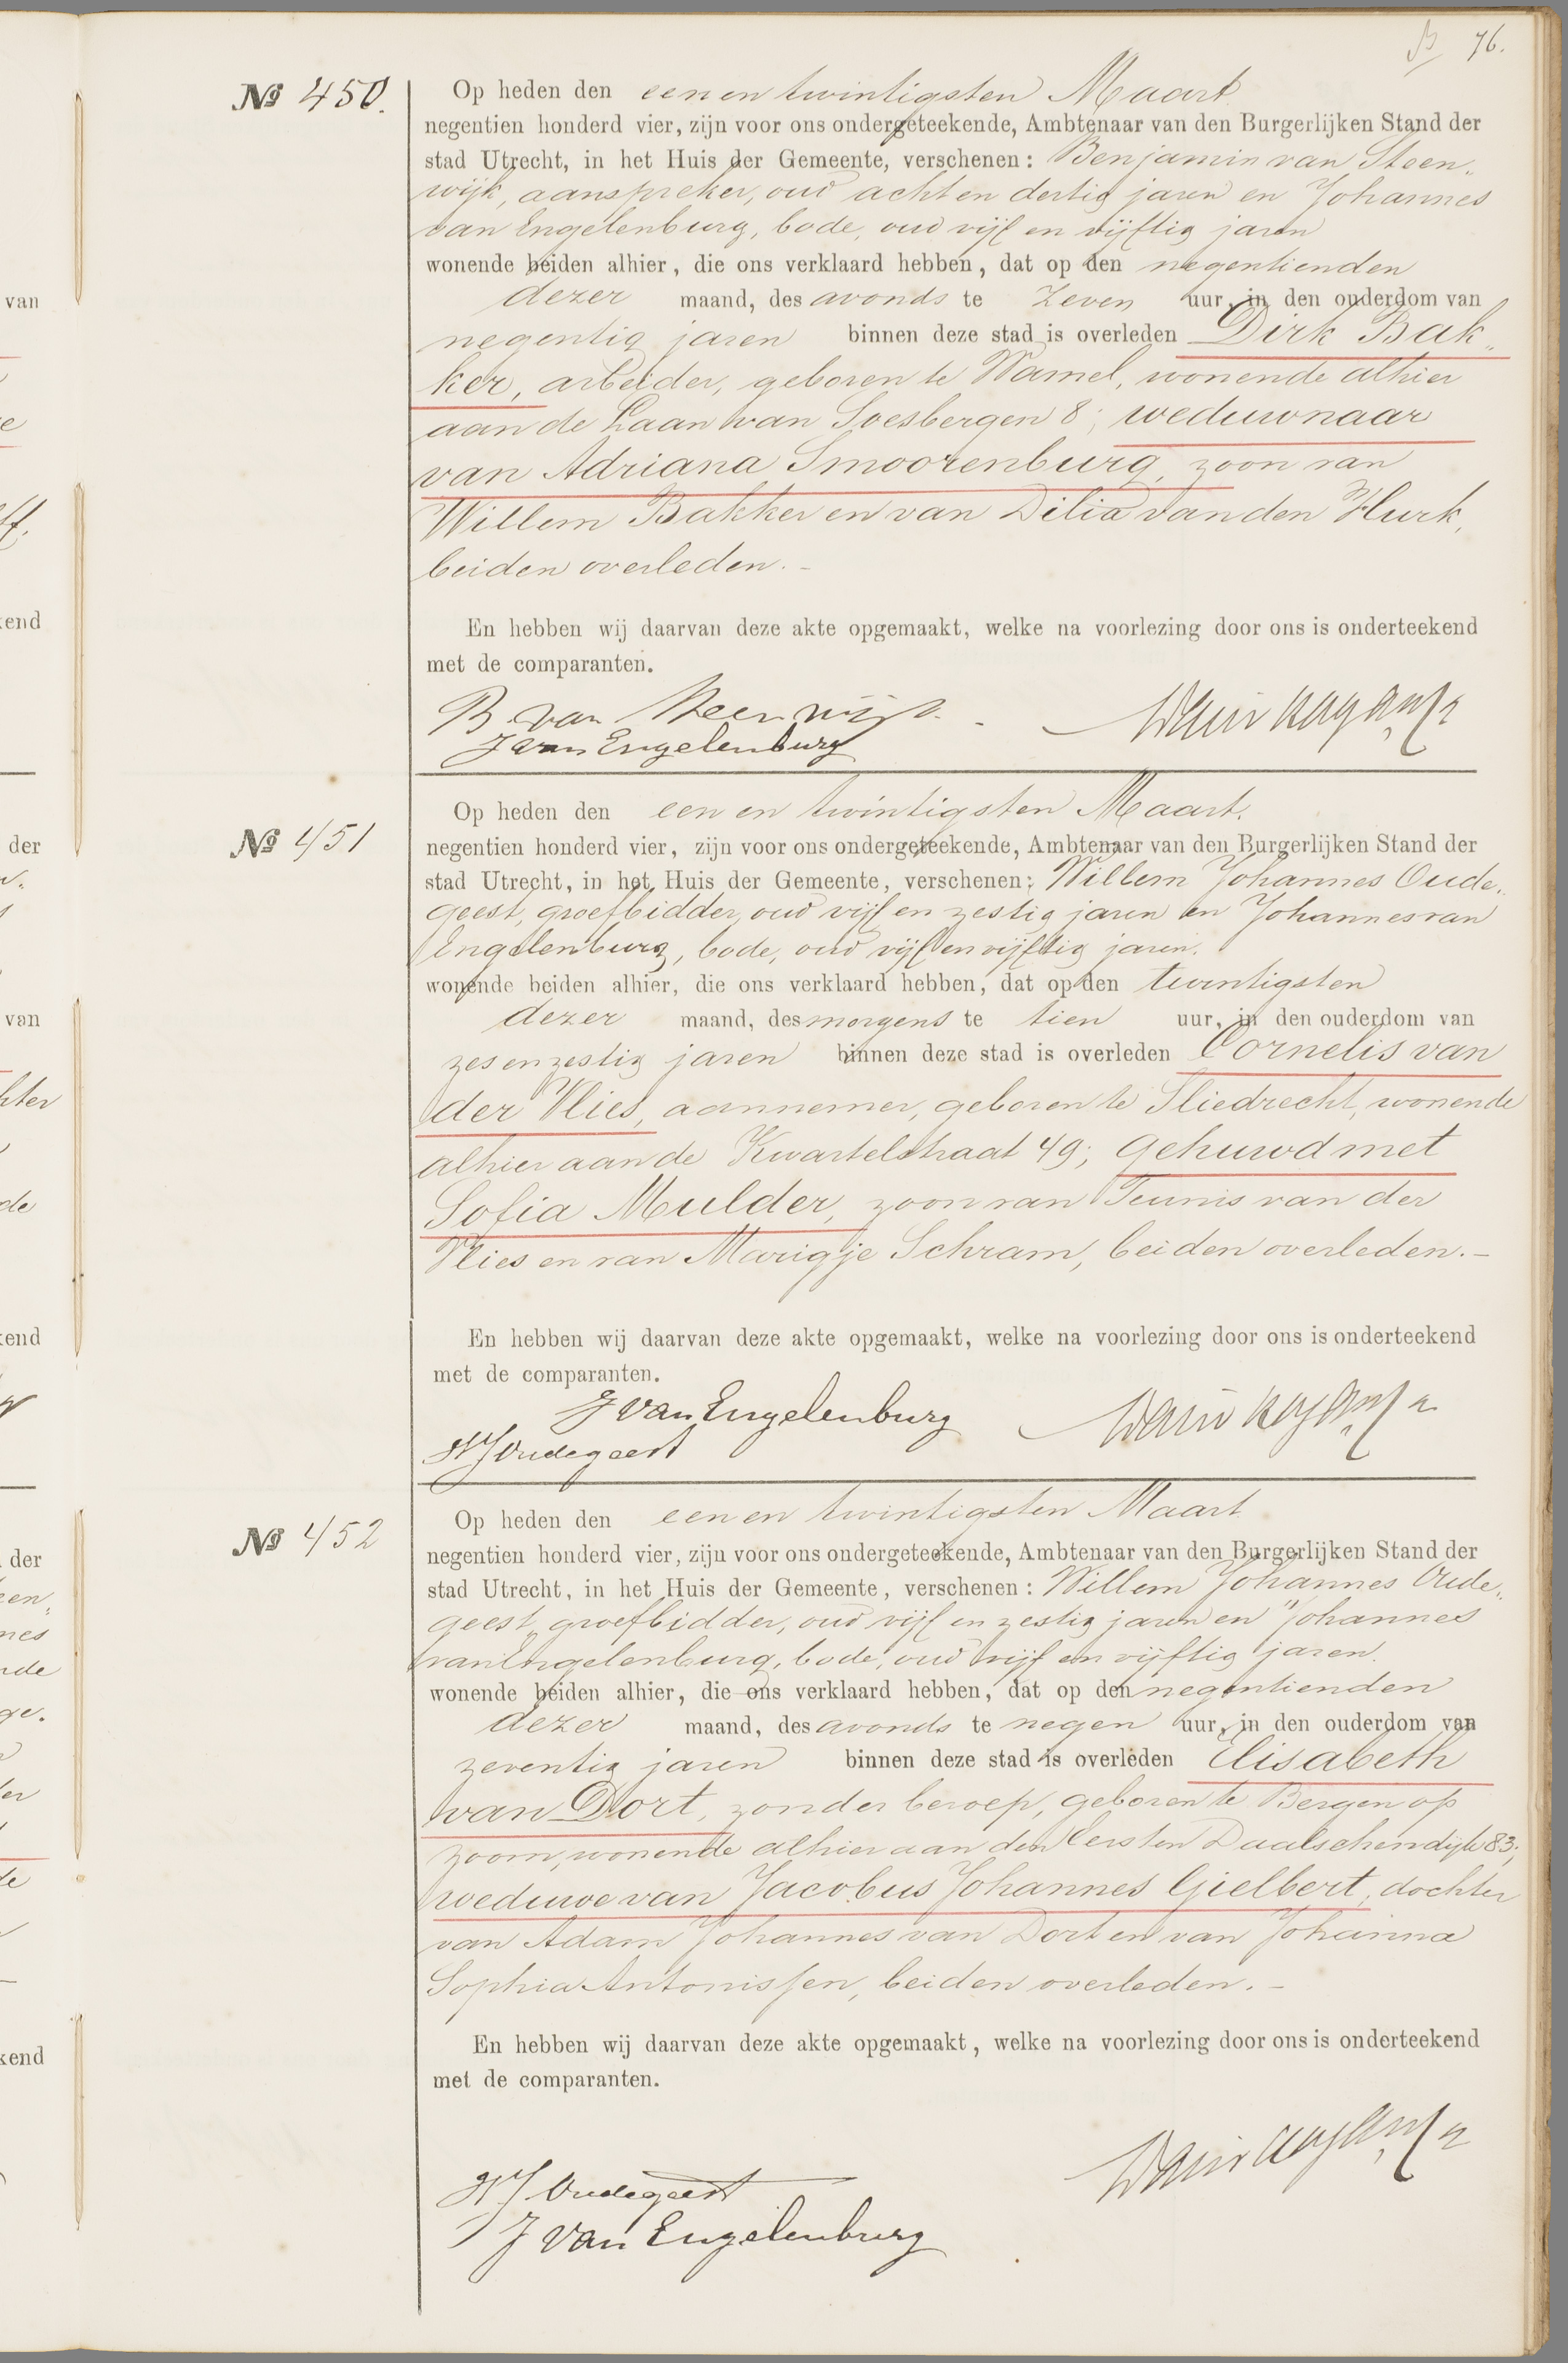 76.
No 450.
Op heden den eenen twintigsten Maart
negentien honderd vier, zijn voor ons ondergeteekende, Ambtenaar van den Burgerlijken Stand der
stad Utrecht, in het Huis der Gemeente, verschenen: Benjamin van Steen„
wijk, aanspreker, oud acht en dertig jaren en Johannes
van Engelenburg, bode, oud vijf en vijftig jaren
wonende beiden alhier, die ons verklaard hebben, dat op den negentienden
dezer maand, des avonds te zeven uur, in den ouderdom van
negentig jaren binnen deze stad is overleden Dirk Bak„
ker, arbeider, geboren te Wamel, wonende alhier
aan de Laan van Soesbergen 8; weduwnaar
van Adriana Smoorenburg, zoon van
Willem Bakker en van Dilia van den Hurk,
beiden overleden. –
En hebben wij daarvan deze akte opgemaakt, welke na voorlezing door ons is onderteekend
met de comparanten.
B. van Steenwijk
J van Engelenburg
No 451
Op heden den een en twintigsten Maart.
negentien honderd vier, zijn voor ons ondergeteekende, Ambtenaar van den Burgerlijken Stand der
stad Utrecht, in het Huis der Gemeente, verschenen: Willem Johannes Oude„
geest, groefbidder, oud vijf en zestig jaren en Johannes van
Engelenburg, bode, oud vijf en vijftig jaren.
wonende beiden alhier, die ons verklaard hebben, dat op den twintigsten
dezer maand, des morgens te tien uur, in den ouderdom van
zes en zestig jaren binnen deze stad is overleden Cornelis van
der Vlies, aannemer, geboren te Sliedrecht, wonende
alhier aan de Kwartelstraat 49; gehuwd met
Sofia Mulder, zoon van Teunis van der
Vlies en van Marigje Schram, beiden overleden. –
En hebben wij daarvan deze akte opgemaakt, welke na voorlezing door ons is onderteekend
met de comparanten.
J van Engelenburg
WJ Oudegeest
No 452
Op heden den eenen twintigsten Maart
negentien honderd vier, zijn voor ons ondergeteekende, Ambtenaar van den Burgerlijken Stand der
stad Utrecht, in het Huis der Gemeente, verschenen: Willem Johannes Oude„
geest, groefbidder, oud vijf en zestig jaren en Johannes
van Engelenburg, bode, oud vijf en vijftig jaren.
wonende beiden alhier, die ons verklaard hebben, dat op den negentienden
dezer maand, des avonds te negen uur, in den ouderdom van
zeventig jaren binnen deze stad is overleden Elisabeth
van Dort, zonder beroep, geboren te Bergen op
zoom, wonende alhier aan den Eersten Daalschendijk 83;
weduwe van Jacobus Johannes Gielbert, dochter
van Adam Johannes van Dort en van Johanna
Sophia Antonissen, beiden overleden. –
En hebben wij daarvan deze akte opgemaakt, welke na voorlezing door ons is onderteekend
met de comparanten.
WJ Oudegeest
J van Engelenburg